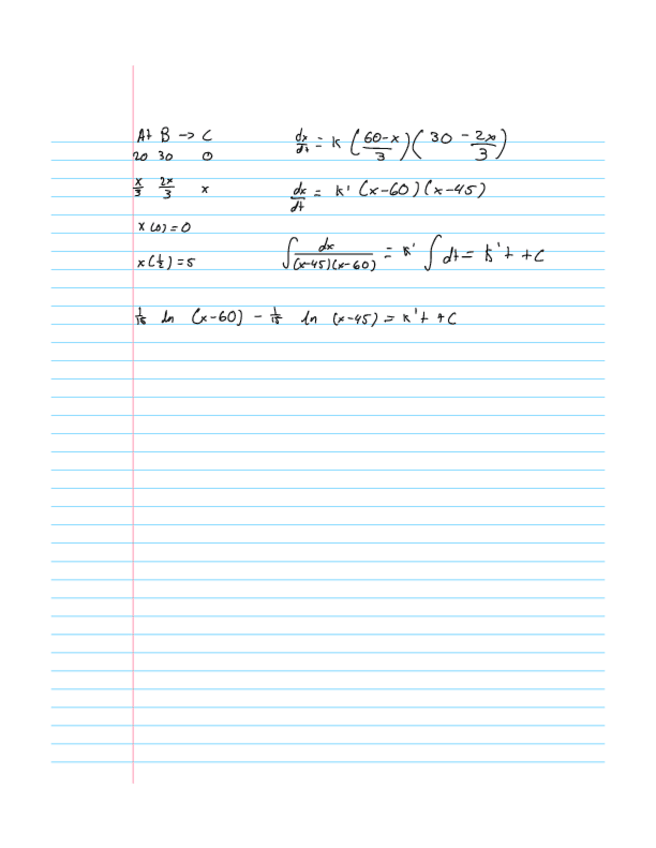 A+ B -> C
20 30 0
x/3 2x/3 x
x(0)=0
x(½)=5
dx/dt = k (60-x/3)(30 - 2x/3)
dx/dt = k' (x-60)(x-45)
∫ dx/(x-45)(x-60) = k' ∫ dt = k't + C
1/15 ln (x-60) - 1/15 ln (x-45) = k't + C